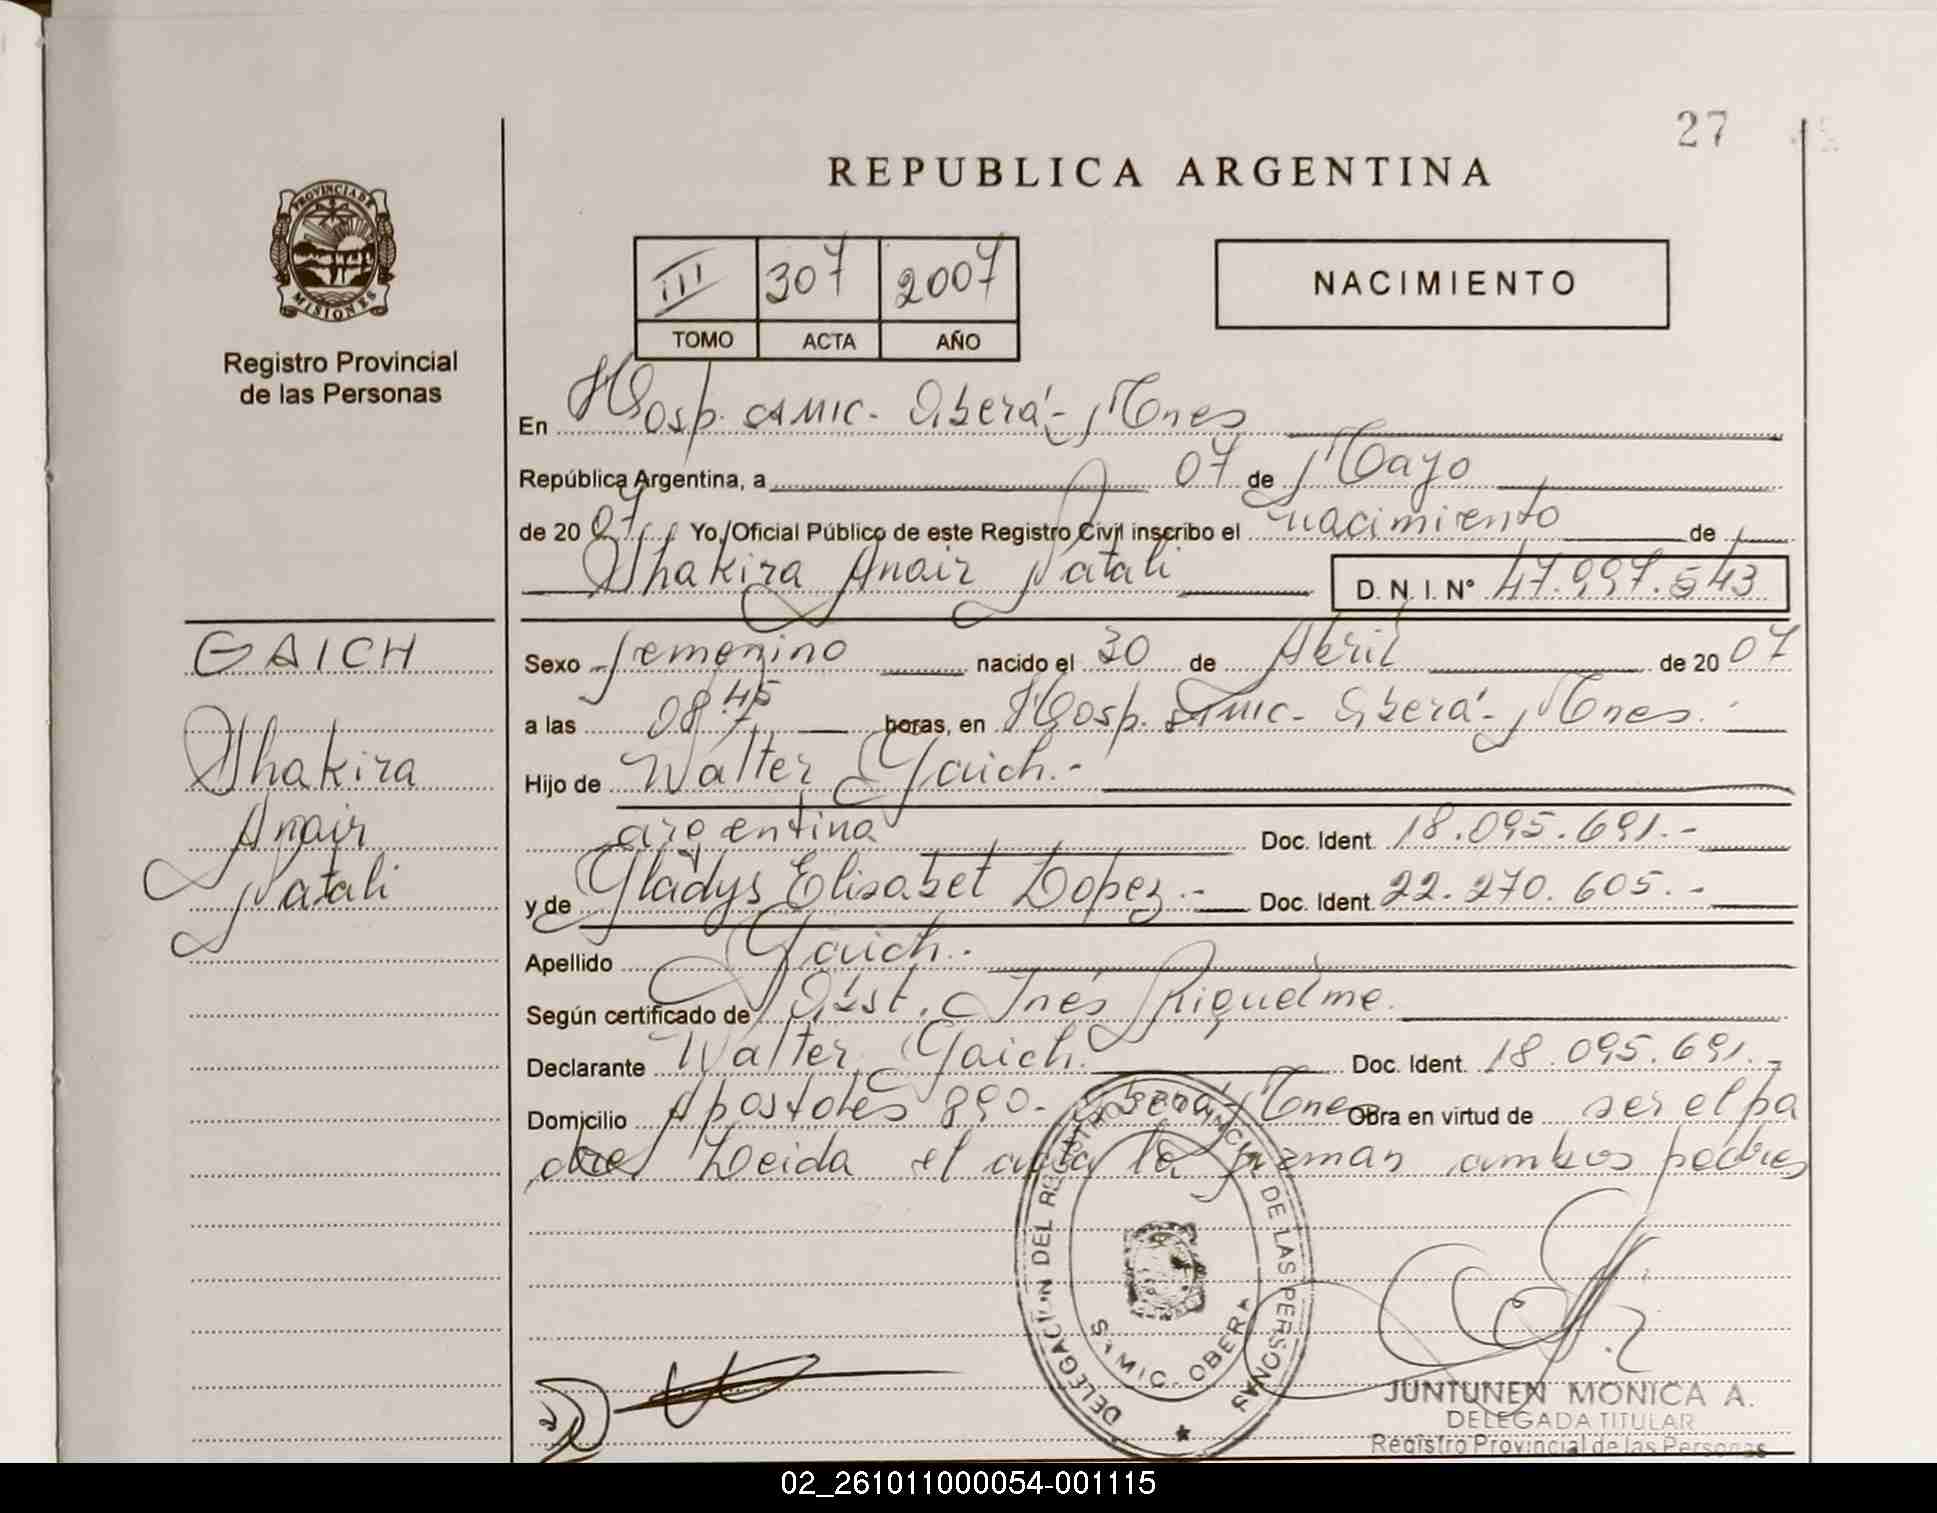 27
REPUBLICA ARGENTINA
PROVINCIA DE
MISIONES
Registro Provincial
de las Personas
III 307 2007
TOMO ACTA AÑO
NACIMIENTO
En Hosp. SAMIC - Oberá - Mnes
República Argentina, a 07 de Mayo
de 2007 Yo, Oficial Público de este Registro Civil inscribo el nacimiento de
Shakira Anair Natali D. N. I. N° 47.997.543
GAICH
Shakira
Anair
Natali
Sexo femenino nacido el 30 de Abril de 2007
a las 08.45 horas, en Hosp. Samic - Oberá - Mnes.
Hijo de Walter Gaich.-
argentina Doc. Ident. 18.095.691.-
y de Gladys Elisabet Lopez.- Doc. Ident. 22.270.605.-
Apellido Gaich.-
Según certificado de Obst. Inés Riquelme.
Declarante Walter Gaich. Doc. Ident. 18.095.691.-
Domicilio Apostoles 890 - Oberá - Mnes Obra en virtud de ser el pa
dre Leida el acta la firman ambos padres
DELEGACION DEL REGISTRO PROVINCIAL DE LAS PERSONAS
SAMIC - OBERA
JUNTUNEN MONICA A.
DELEGADA TITULAR
Registro Provincial de las Personas
02_261011000054-001115